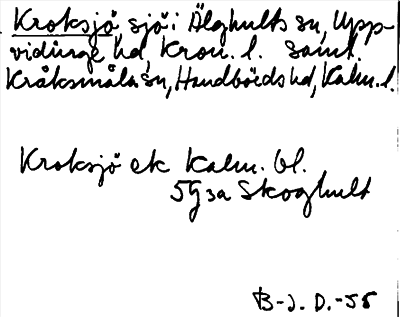 Kroksjö, sjö i Älghults sn, Upp-
vidinge hd, Kron. l. samt.
Kråksmåla sn, Handbörds hd, Kalm. l.
Kroksjö ek Kalm. bl.
5G 3a Skoghult
B-J. D. -55